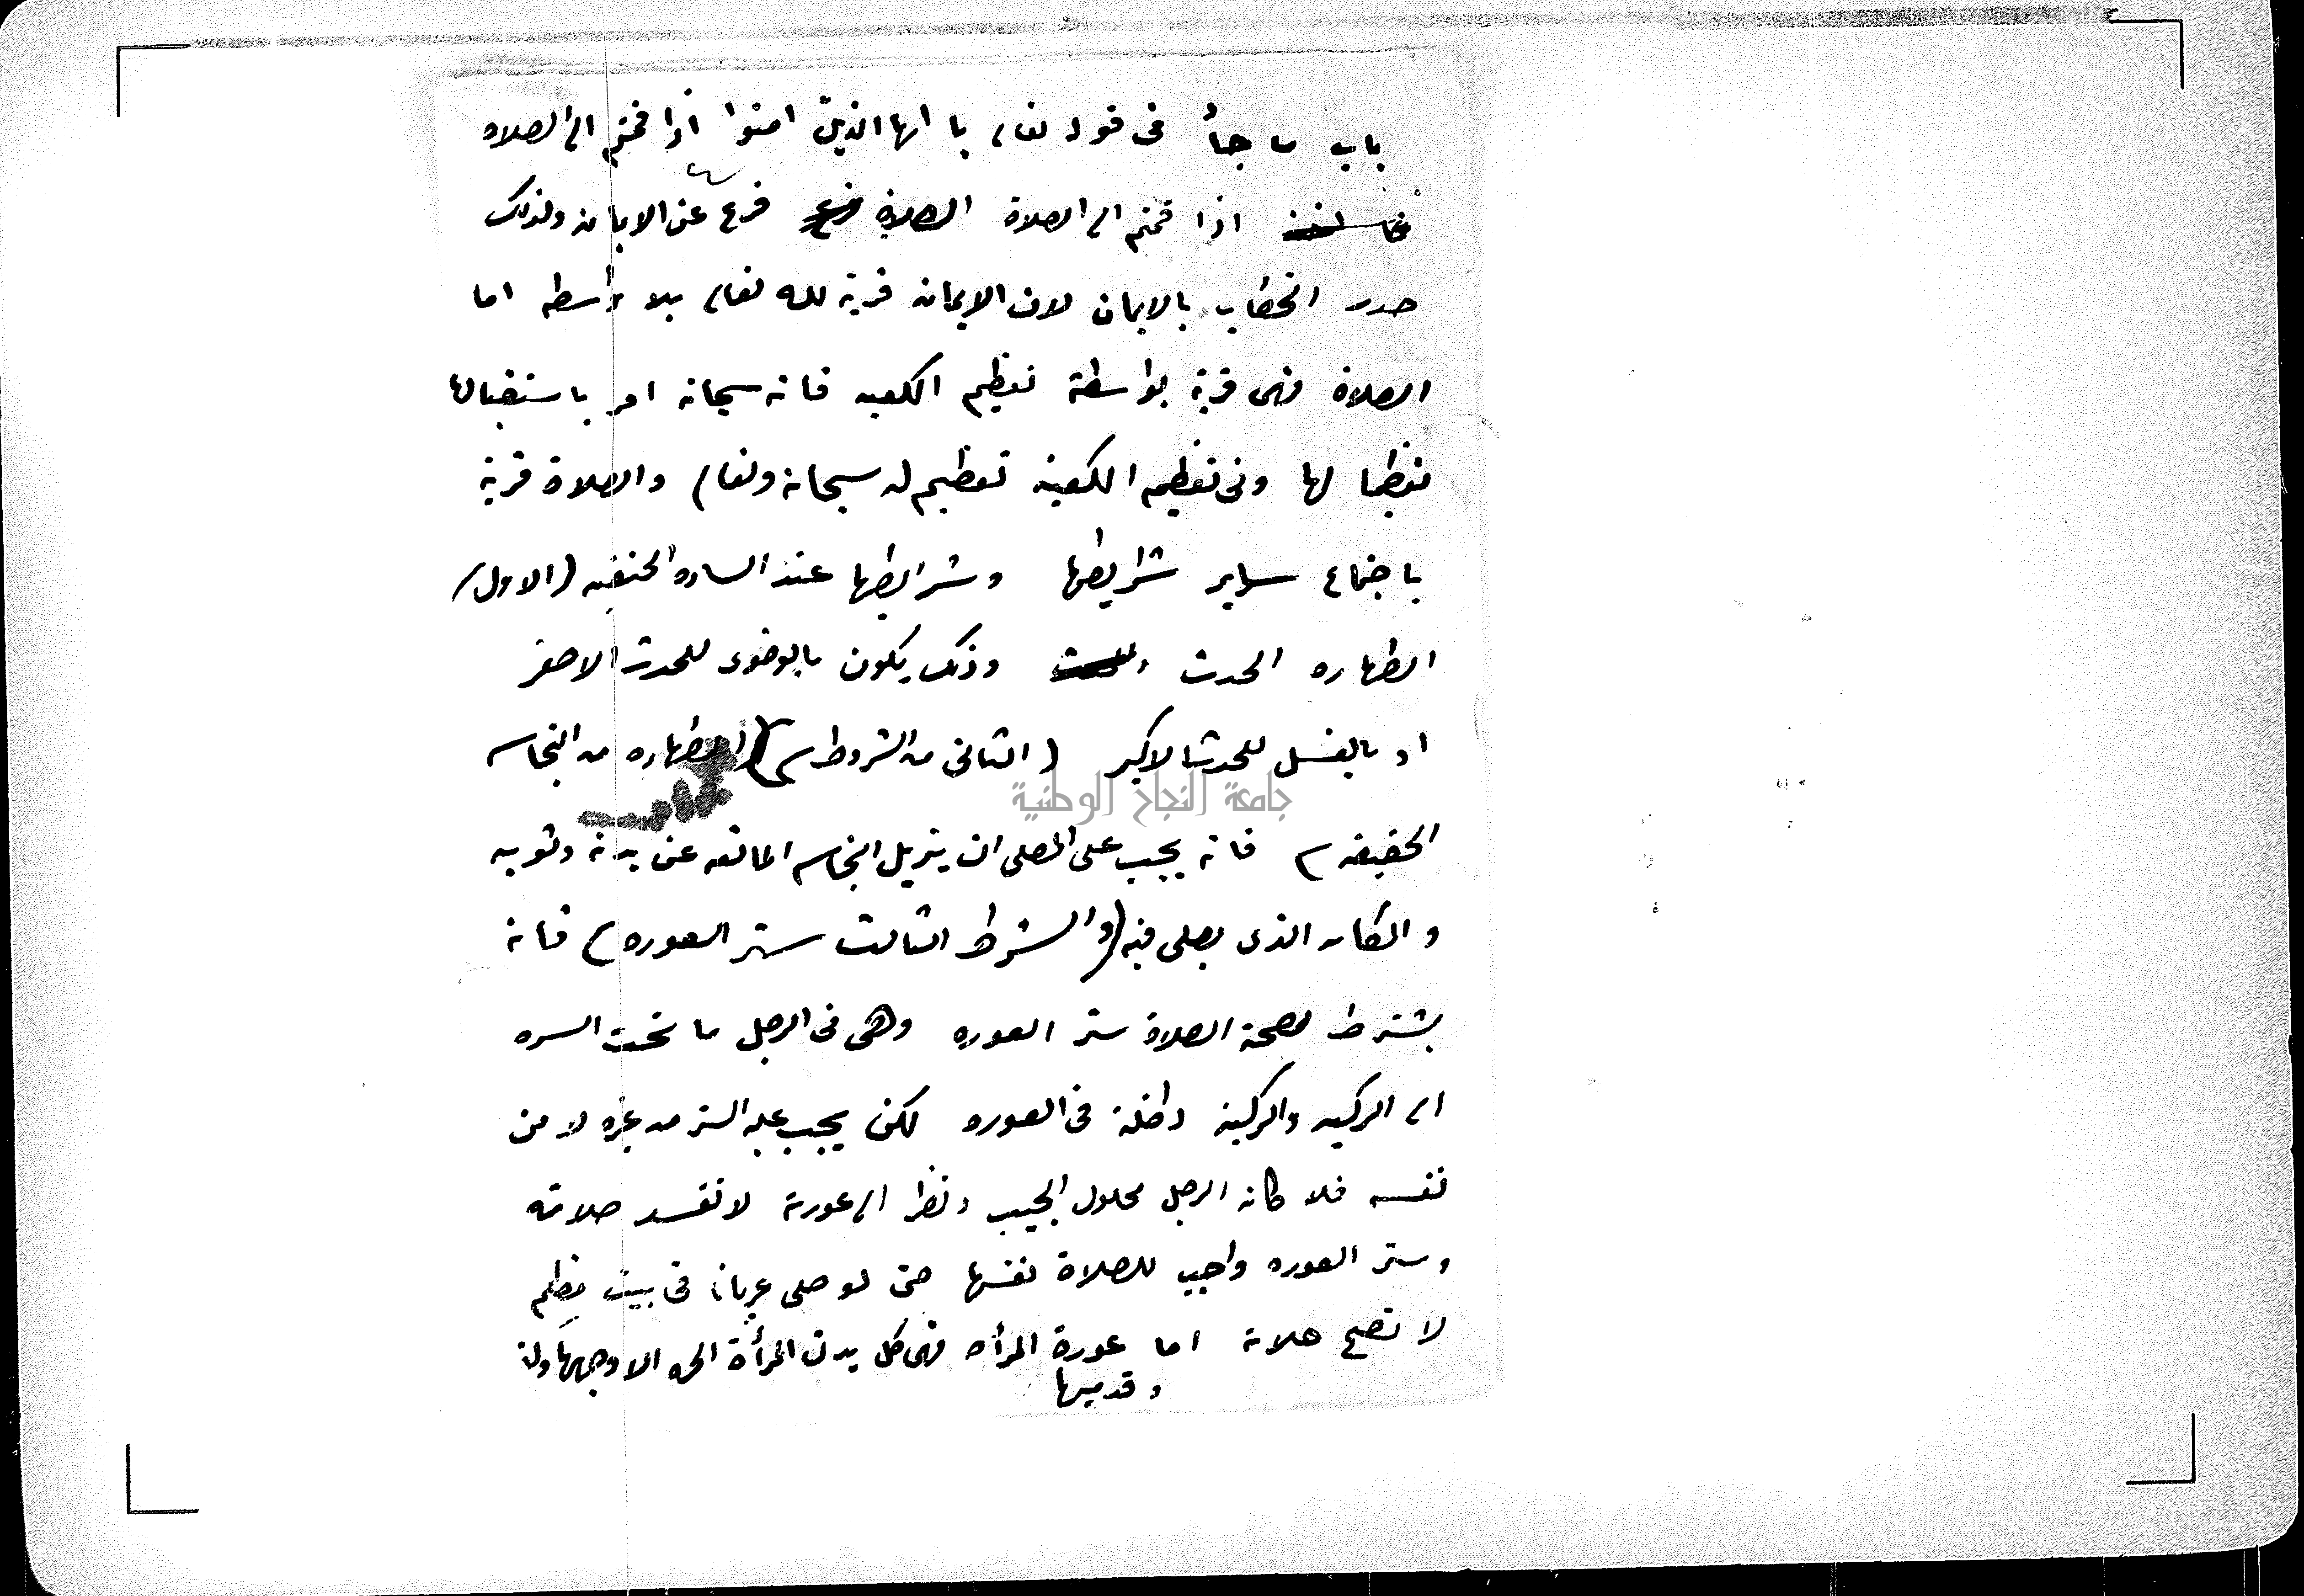 باب ما جأ فى قوله تعالى يا ايها الذين امنوا اذا قمتم الى الصلاه
اذا قمتم الى الصلاة الصلاة فرع عن الايمان ولذلك
صدر الخطاب بالايمان لان الايمان قربة لله تعالى بلا واسطه اما
الصلاة فهى قربة بواسطة تعظيم الكعبه فانه سبحانه امر باستقبالها
تعظيما لها وفى تعظيم الكعبة تعظيم له سبحانه وتعالى والصلاة قربة
باجتماع ساير شرايطها وشرايطها عند الساده الحنفيه (الاول)
الطهاره الحدث وذلك يكون بالوضوء للحدث الاصغر
او بالغسل للحدث الاكبر (الثانى من الشروط) (الطهاره من النجاسه
جامعة النجاح الوطنية
الحقيقه) فانه يجب على المصلى ان يزيل النجاسه المانعه عن بدنه وثوبه
والمكان الذى يصلى فيه (والشرط الثالث ستر العوره) فانه
يشترط لصحة الصلاة ستر العوره وهى فى الرجل ما تحت السره
الى الركبه والركبة داخلة فى العوره لكن يجب عليه الستر من غيره لا من
نفسه فلا كان الرجل محلول الجيب ونظر الى عورته لا تفسد صلاته
وستر العوره واجب للصلاة نفسها حتى لو صلى عريانا فى بيت مظلم
لا تصح صلاته اما عورة المرأه فهى كل بدن المرأة الحره الا وجهها
وقدميها